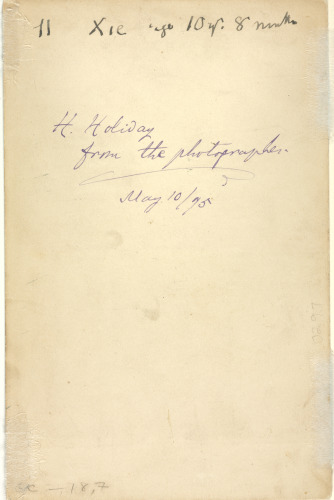 11 Xie age 10 yr. 8 months
H. Holiday
from the photographer.
May 10/95